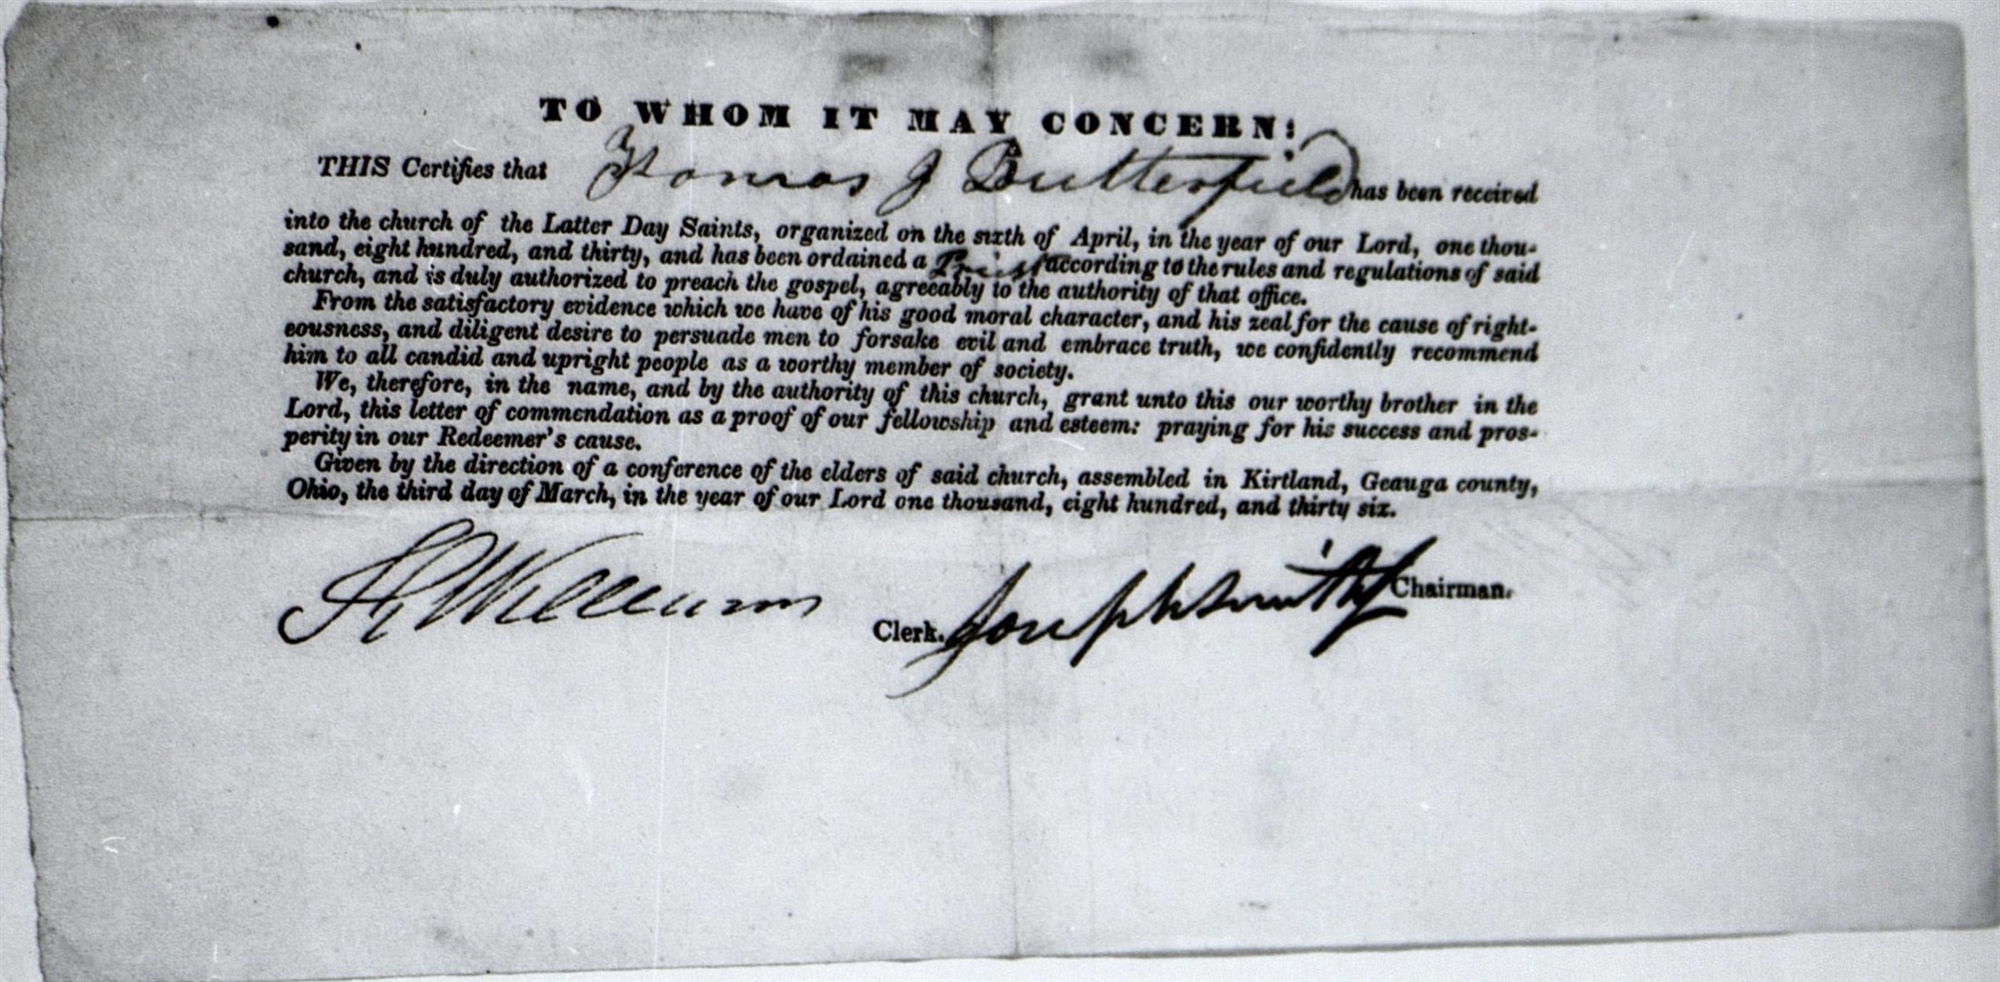 TO WHOM IT MAY CONCERN:
THIS Certifies that Thomas J Butterfield has been received
into the church of the Latter Day Saints, organized on the sixth of April, in the year of our Lord, one thou-
sand, eight hundred, and thirty, and has been ordained a Priest according to the rules and regulations of said
church, and is duly authorized to preach the gospel, agreeably to the authority of that office.
From the satisfactory evidence which we have of his good moral character, and his zeal for the cause of right-
eousness, and diligent desire to persuade men to forsake evil and embrace truth, we confidently recommend
him to all candid and upright people as a worthy member of society.
We, therefore, in the name, and by the authority of this church, grant unto this our worthy brother in the
Lord, this letter of commendation as a proof of our fellowship and esteem: praying for his success and pros-
perity in our Redeemer's cause.
Given by the direction of a conference of the elders of said church, assembled in Kirtland, Geauga county,
Ohio, the third day of March, in the year of our Lord one thousand, eight hundred, and thirty six.
F G Williams Clerk. Joseph Smith Jr Chairman.